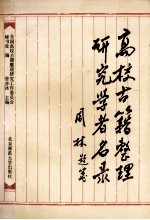 高校古籍整理
研究学者名录
周林题签
全国高校古籍整理研究工作委员会
秘书处 编
主编
北京师范大学出版社